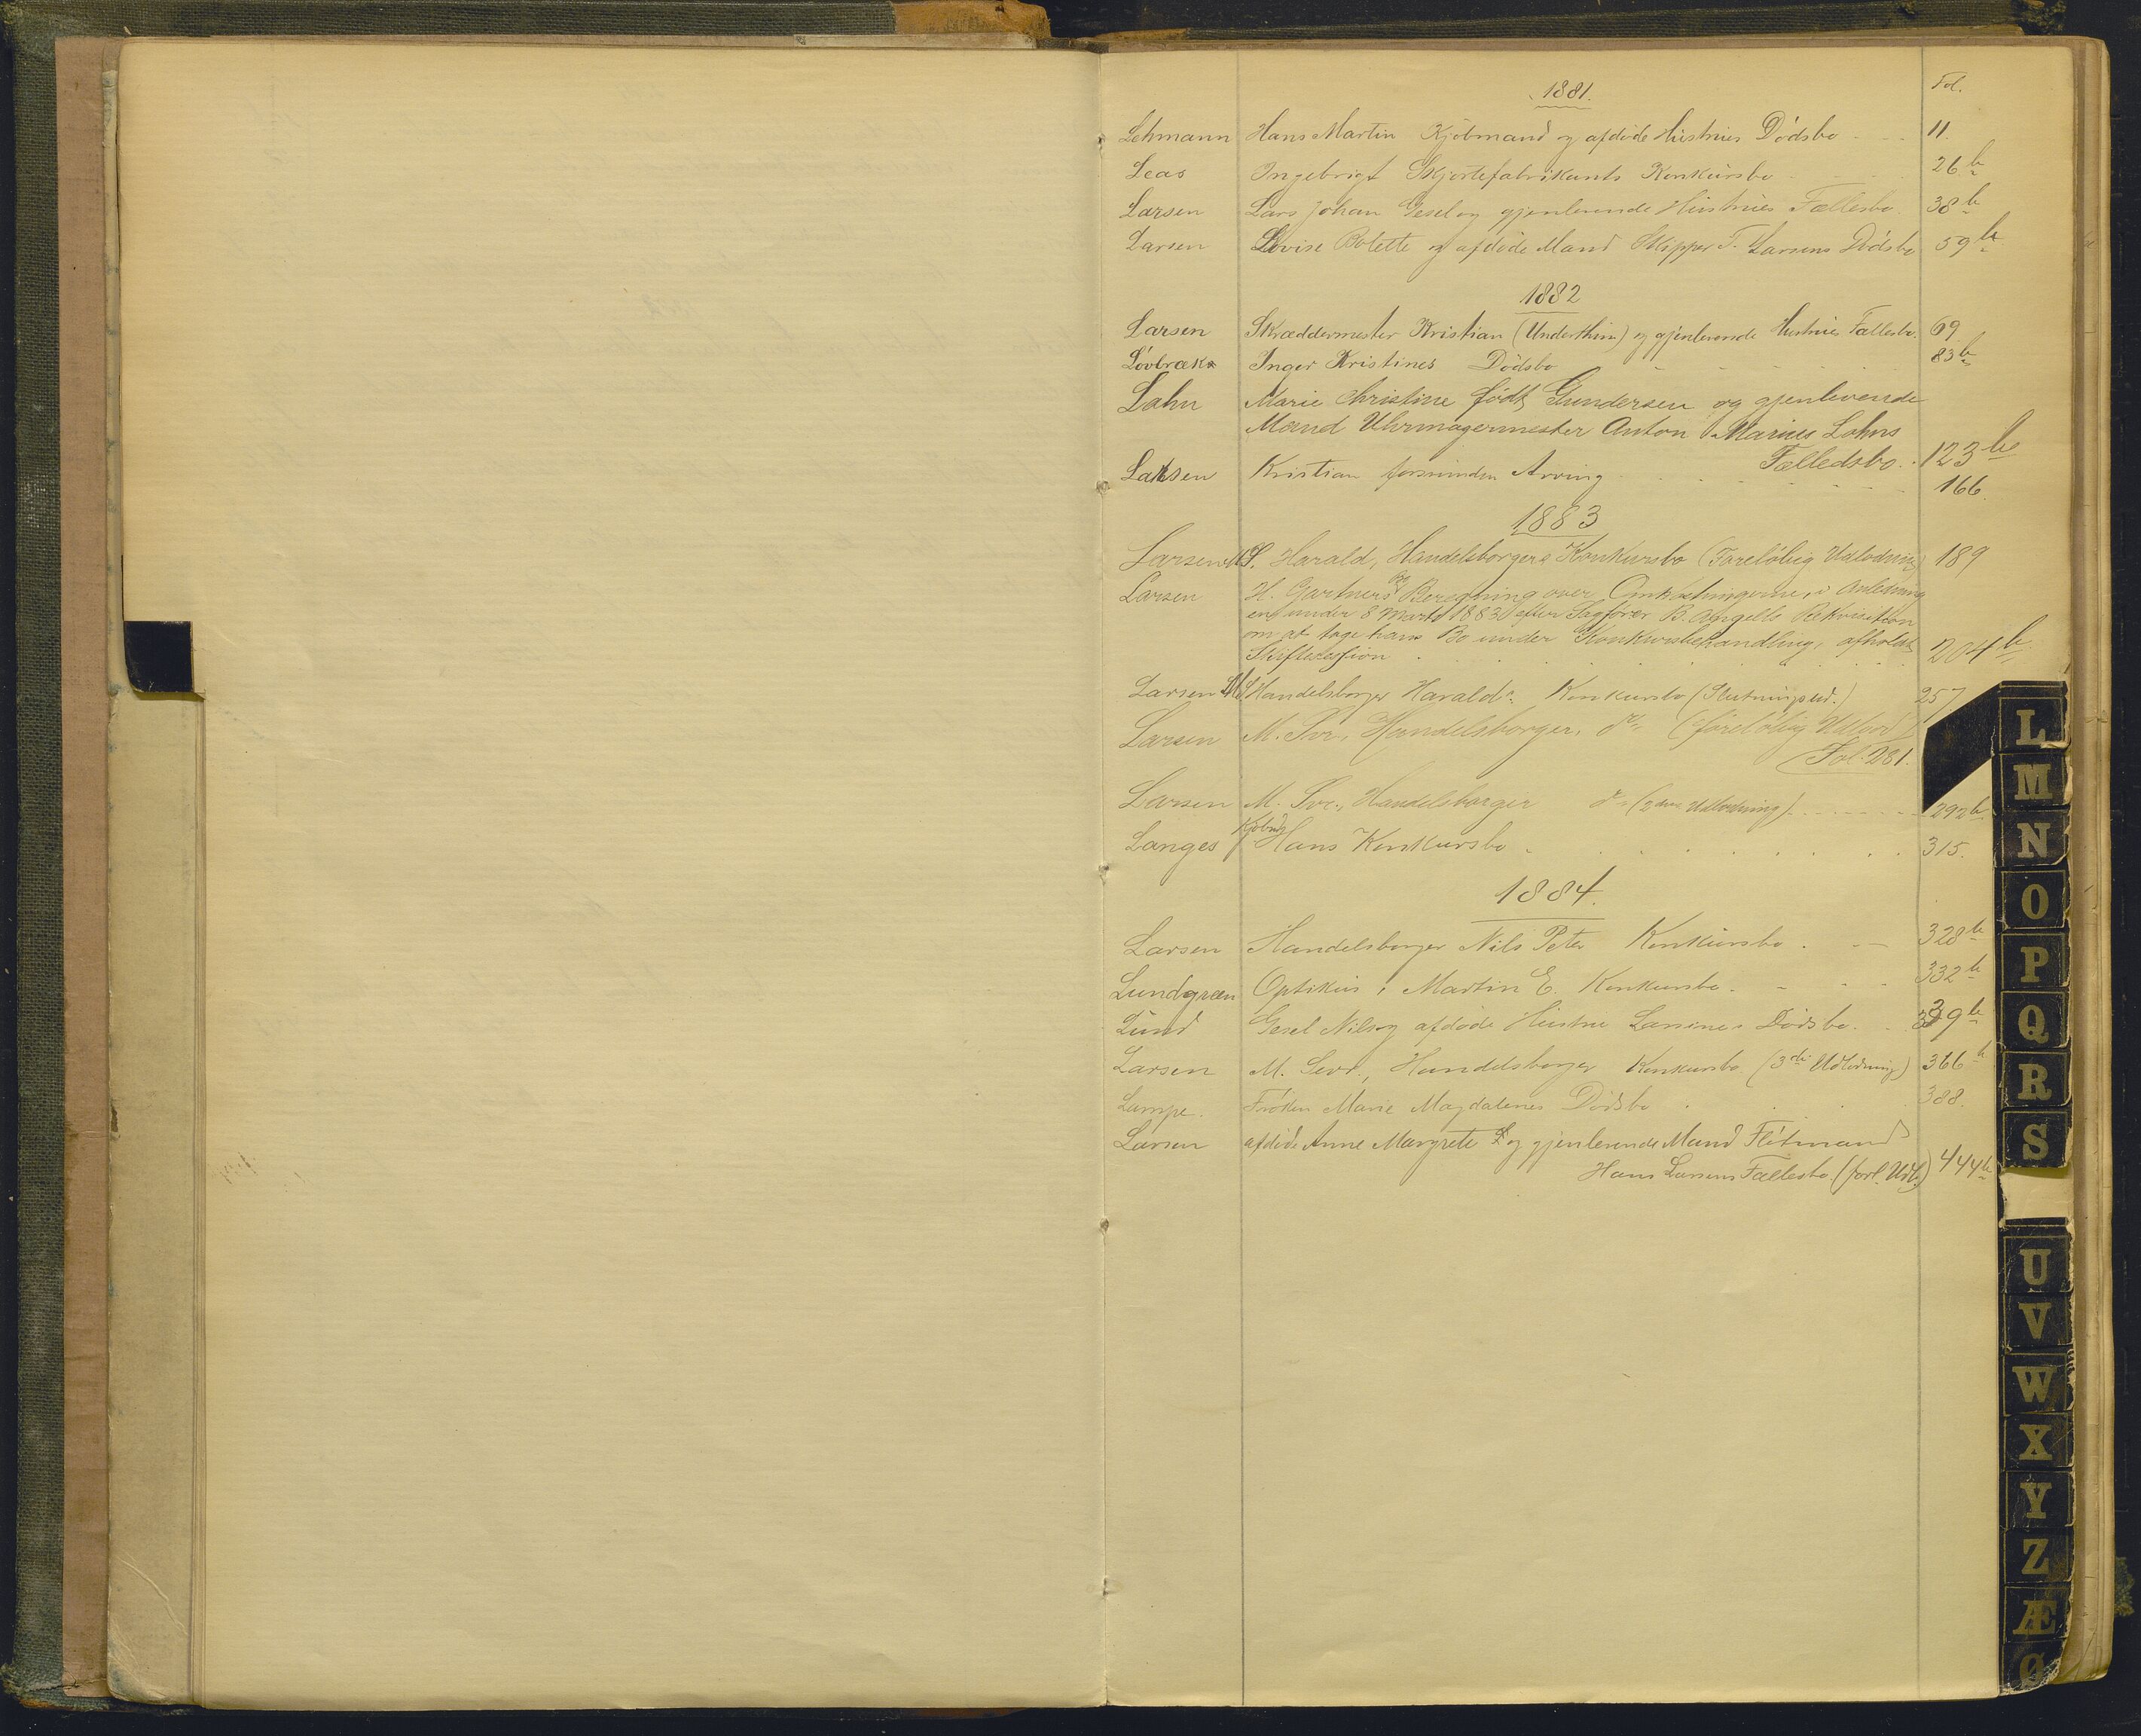 1881.
Fol.
Lehmann Hans Martin Kjöbmand og afdöde Hustrues Dödsbo 11.
Leas Ingebrigt Skjortefabrikants Konkursbo 26b
Larsen Lars Johan Gesel og gjenlevende Hustrues Fællesbo. 38b
Larsen Lovise Bolette og afdöde Mand Skipper T. Larsens Dödsbo 59b
1882
Larsen Skræddermester Kristian (Underthun) og gjenlevende Hustrues Fællesbo. 69
Lövbræk Inger Kristines Dödsbo 83b
Lahn Marie Christine födt Gundersen og gjenlevende
Mand Uhrmagermester Anton Marius Lohns
Fælledsbo. 123b
Larsen Kristian forsvunden Arving 166.
1883
Larsen Harald, Handelsborgers Konkursbo (Forelöbig Udlodning) 189
Larsen H. Gartners Beregning over Omkostningerne, i Anledning
en under 8 Marts 1883 efter Sagförer B. Angells Rekvisition
om at tage hans Bo under Konkursbehandling, afholdt
Skiftesession 204b
Larsen Handelsborger Haralds Konkursbo (Slutningsud.) 257
Larsen M. Svr. Handelsborger, do (forelöbig Udlod)
Fol. 281.
Larsen M. Svr., Handelsborger do (2den Udlodning) 292b
Langes Kjöbmd Hans Konkursbo 315.
1884.
Larsen Handelsborger Nils Peter Konkursbo. 328b
Lundgreen Optikus, Martin E. Konkursbo. 332b
Lund Gesel Nils og afdöde Hustru Larsines Dödsbo. 339b
Larsen M. Sevr., Handelsborger Konkursbo (3die Udlodning) 366b
Lampe. Fröken Marie Magdalenes Dödsbo 388.
Larsen afdöde Anne Margrete L. og gjenlevende Mand Flötmand
Hans Larsens Fællesbo. (forl. Udl.) 444b
L
M
N
O
P
Q
R
S
U
V
W
X
Y
Z
Æ
Ø